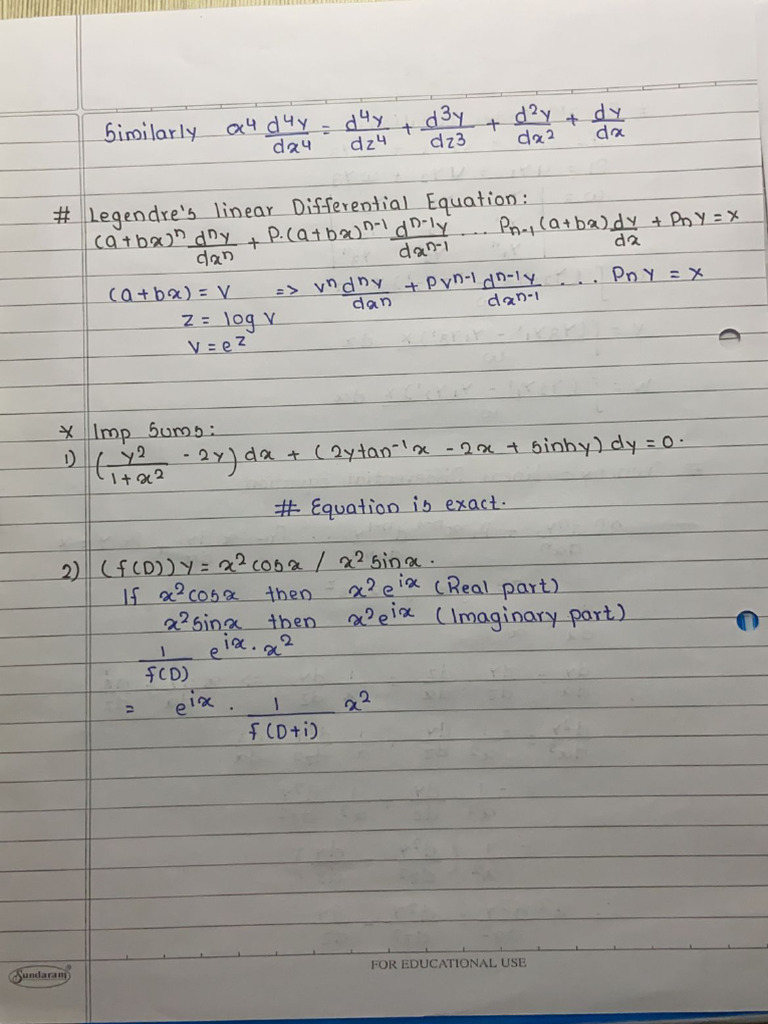 Similarly x⁴ d⁴y/dx⁴ = d⁴y/dz⁴ + d³y/dz³ + d²y/dx² + dy/dx
# Legendre's linear Differential Equation:
(a+bx)ⁿ dⁿy/dxⁿ + P.(a+bx)ⁿ⁻¹ dⁿ⁻¹y/dxⁿ⁻¹ ... Pₙ₋₁(a+bx) dy/dx + PₙY = x
(a+bx) = v => vⁿ dⁿy/dxⁿ + Pvⁿ⁻¹ dⁿ⁻¹y/dxⁿ⁻¹ ... PₙY = x
z = log v
v = eᶻ
* Imp Sums:
1) (y²/(1+x²) - 2y) dx + (2ytan⁻¹x - 2x + sinhy) dy = 0.
# Equation is exact.
2) (f(D))Y = x²cosx / x²sinx.
If x²cosx then x²eⁱˣ (Real part)
x²sinx then x²eⁱˣ (Imaginary part)
1/f(D) eⁱˣ. x²
= eⁱˣ . 1/f(D+i) x²
Sundaram®
FOR EDUCATIONAL USE